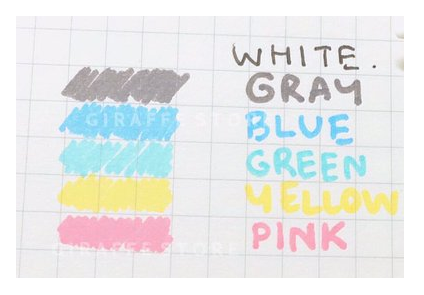 WHITE.
GRAY
BLUE
GIRAFFE STORE
GREEN
YELLOW
PINK
GIRAFFE STORE